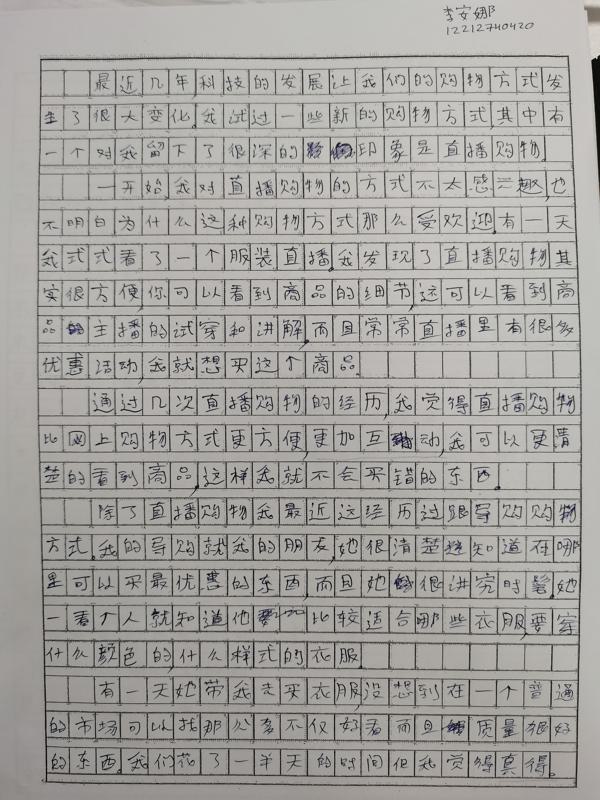 李安娜
12212740420
最近几年科技的发展让我们的购物方式发
生了很大变化,我试过一些新的购物方式,其中有
一个对我留下了很深的印象是直播购物.
一开始,我对直播购物的方式不太感兴趣,也
不明白为什么这种购物方式那么受欢迎.有一天
我式式看了一个服装直播.我发现了直播购物其
实很方便,你可以看到商品的细节,还可以看到商
品主播的试穿和讲解,而且常常直播里有很多
优惠活动,我就想买这个商品.
通过几次直播购物的经历,我觉得直播购物
比网上购物方式更方便,更加互动,我可以更清
楚的看到商品,这样我就不会买错的东西.
除了直播购物我最近这经历过跟导购购物
方式.我的导购就我的朋友,她很清楚知道在哪
里可以买最优惠的东西,而且她很讲究时髦.她
一看个人就知道他比较适合哪些衣服,要穿
什么颜色的,什么样式的衣服.
有一天她带我去买衣服,没想到在一个普通
的市场可以找那么多不仅好看而且质量很好
的东西.我们花了一半天的时间但我觉得真得.